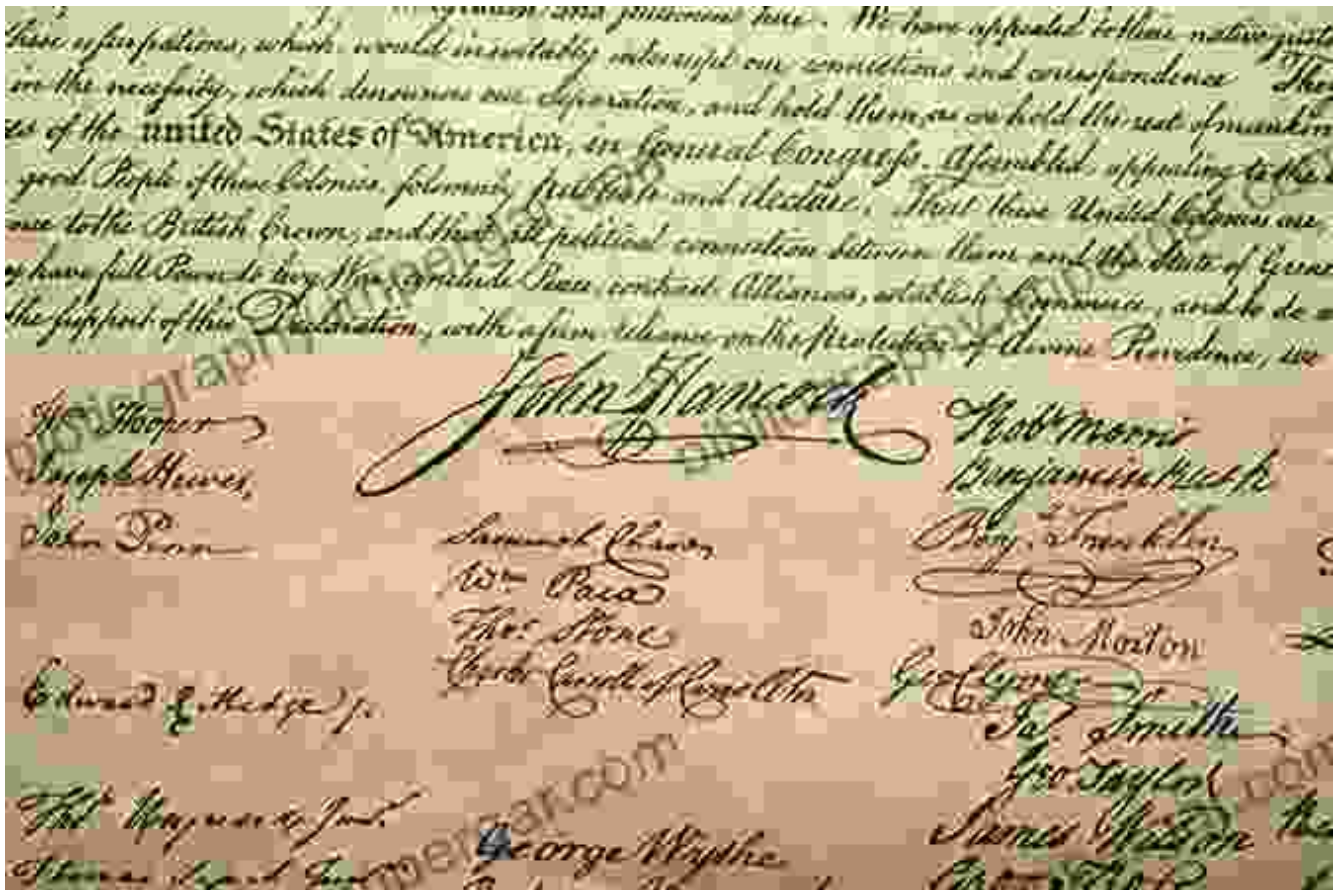 . We have appealed to their native justi
these usurpations, which, would inevitably interrupt our connections and correspondence
in the necessity, which denounces our Separation, and hold them, as we hold the rest of mankin
es of the united States of America, in General Congress, Assembled, appealing to the
good People of these Colonies, solemnly publish and declare, That these United Colonies are
nce to the British Crown, and that all political connection between them and the State of Great
y have full Power to levy War, conclude Peace, contract Alliances, establish Commerce, and to do
the support of this Declaration, with a firm reliance on the Protection of divine Providence, we
John Hancock
Wm Hooper
Joseph Hewes,
John Penn
Edward Rutledge jr.
Thos Heyward Junr.
Samuel Chase
Wm Paca
Thos Stone
Charles Carroll of Carrollton
George Wythe
Robt Morris
Benjamin Rush
Benj. Franklin
John Morton
Geo Clymer
Jas. Smith
Geo. Taylor
James Wilson